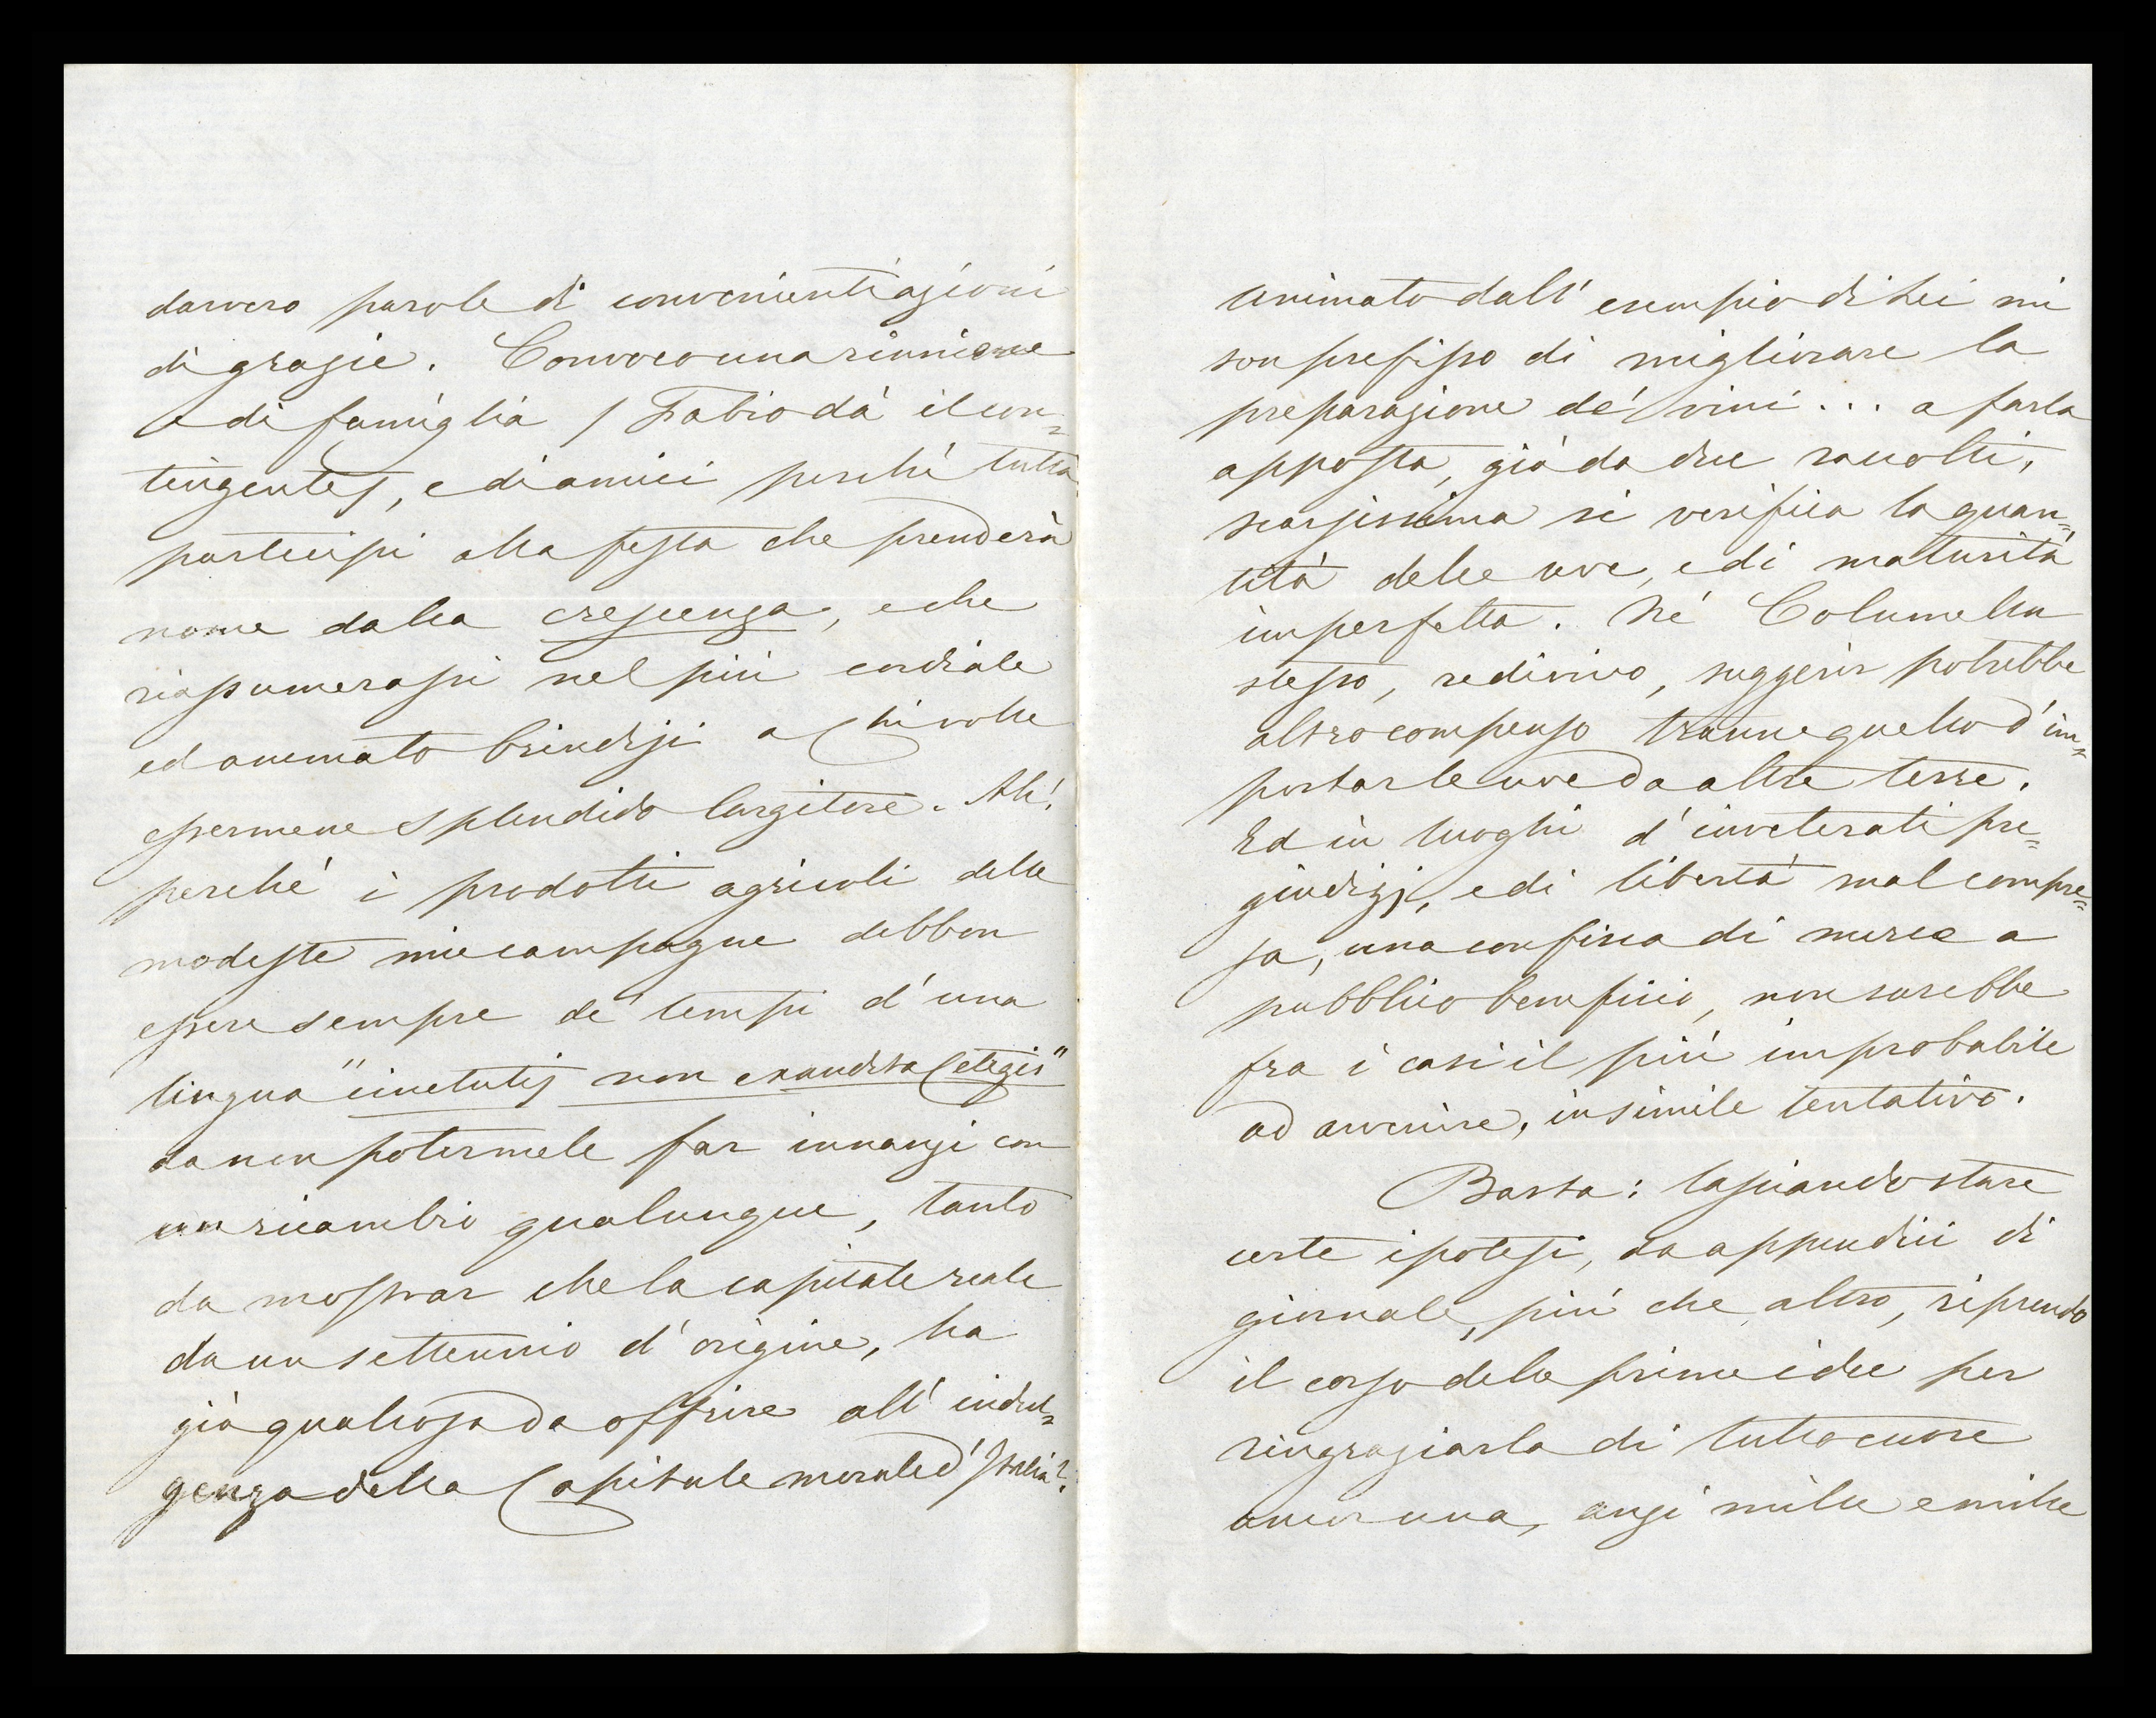 davvero parole di convenienti azioni
di grazie. Convoco una riunione
e di famiglia / Fabio dà il con=
tingente /, e di amici perché tutta
partecipi alla festa che prenderà
nome dalla crescenza, e che
riassumerassi nel più cordiale
ed animato brindisi a Chi volle
essermene splendido largitore. Ah!
perché i prodotti agricoli delle
modeste mie campagne debbon
essere sempre de' tempi d'una
lingua "cinctutis non exaudita Cetegis"
da non potermele far innanzi con
un ricambio qualunque, tanto
da mostrar che la capitale reale
da un settennio d'origine, ha
già qualcosa da offrire all'indul=
genza della Capitale morale d'Italia?
Animato dall'esempio di Lei mi
son prefisso di migliorare la
preparazione de' vini ... a farla
apposta, già da due raccolti,
scarsissima si verifica la quan=
tità delle uve, e di maturità
imperfetta. Né Columella
stesso, redivivo, suggerir potrebbe
altro compenso tranne quello d'im=
portar le uve da altre terre.
Ed in luoghi d'inveterati pre=
giudizj, e di libertà mal compre=
sa, una confisca di merce a
pubblico beneficio, non sarebbe
fra i casi il più improbabile
ad avvenire, in simile tentativo.
Basta: lasciando stare
certe ipotesi, da appendici di
giornale, più che altro, riprendo
il corso delle prime idee per
ringraziarla di tutto cuore
ancor una, anzi mille e mille